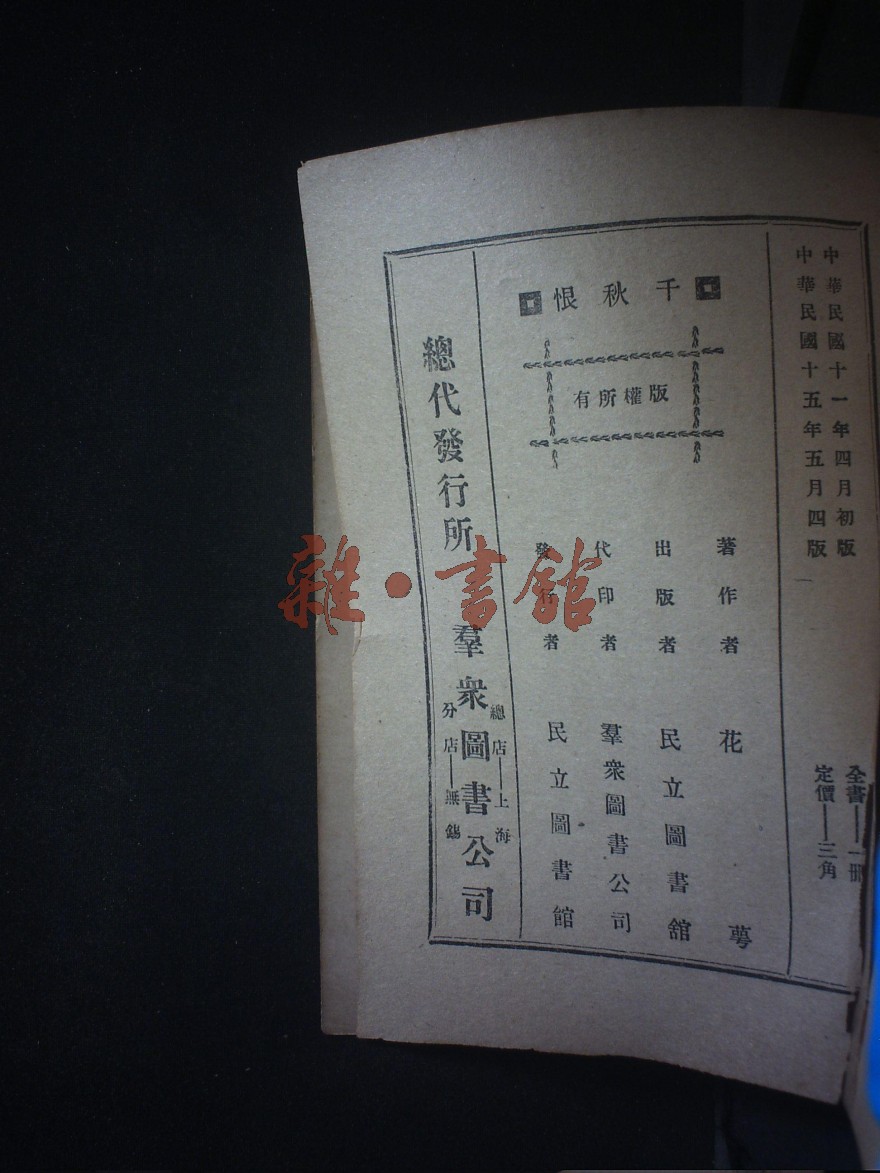 中華民國十一年四月初版
中華民國十五年五月四版
全書——一冊
定價——三角
千秋恨
版權所有
著作者 花萼
出版者 民立圖書舘
代印者 羣衆圖書公司
發行者 民立圖書館
總代發行所 羣衆圖書公司
總店——上海
分店——無錫
雜·書舘